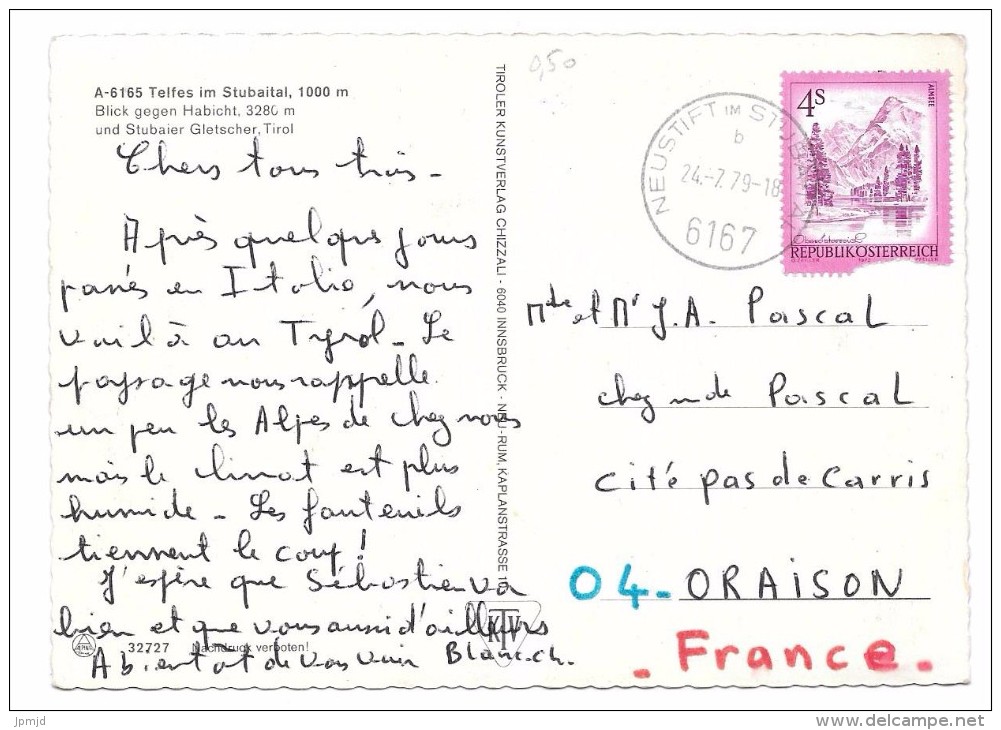 A-6165 Telfes im Stubaital, 1000 m
Blick gegen Habicht, 3280 m
und Stubaier Gletscher, Tirol
Chers tous trois -
Après quelques jours
passés en Italie, nous
voilà au Tyrol - Le
paysage nous rappelle
un peu les Alpes de chez nous
mais le climat est plus
humide - Les fauteuils
tiennent le coup !
J'espère que Sébastien va
bien et que vous aussi d'ailleurs
A bientôt de vous voir Blanch.
32727 Nachdruck verboten!
TIROLER KUNSTVERLAG CHIZZALI - 6040 INNSBRUCK - NEU-RUM, KAPLANSTRASSE 10
KTV
0,50
NEUSTIFT IM STUBAITAL
b
24.-7.79-18
6167
4S
ALMSEE
Oberösterreich
REPUBLIK ÖSTERREICH
Mme et Mr J.A. Pascal
chez Pascal
cité pas de Carris
04 - ORAISON
- France -
jpmjd
www.delcampe.net